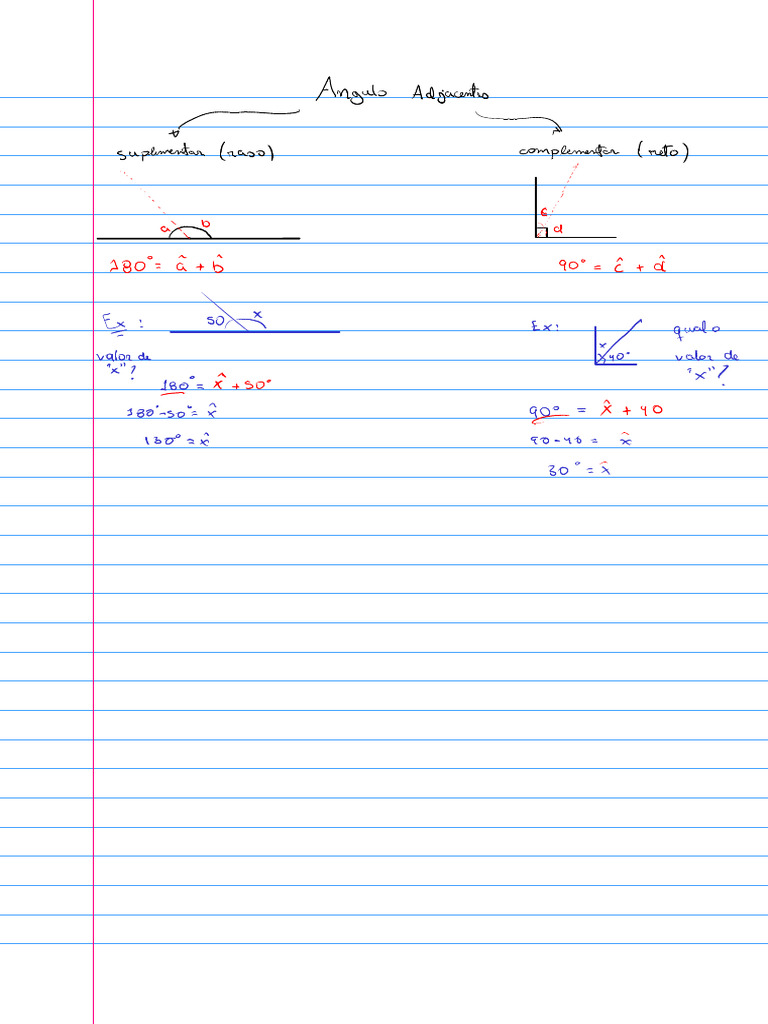 Angulo Adjacentes
suplementar (raso)
a b
180° = â + b̂
Ex:
50 x
valor de
"x"?
180° = x̂ + 50°
180° - 50° = x̂
130° = x̂
complementar (reto)
c
d
90° = ĉ + d̂
Ex:
x
40°
qual o
valor de
"x"?
90° = x̂ + 40
90 - 40 = x̂
30° = x̂